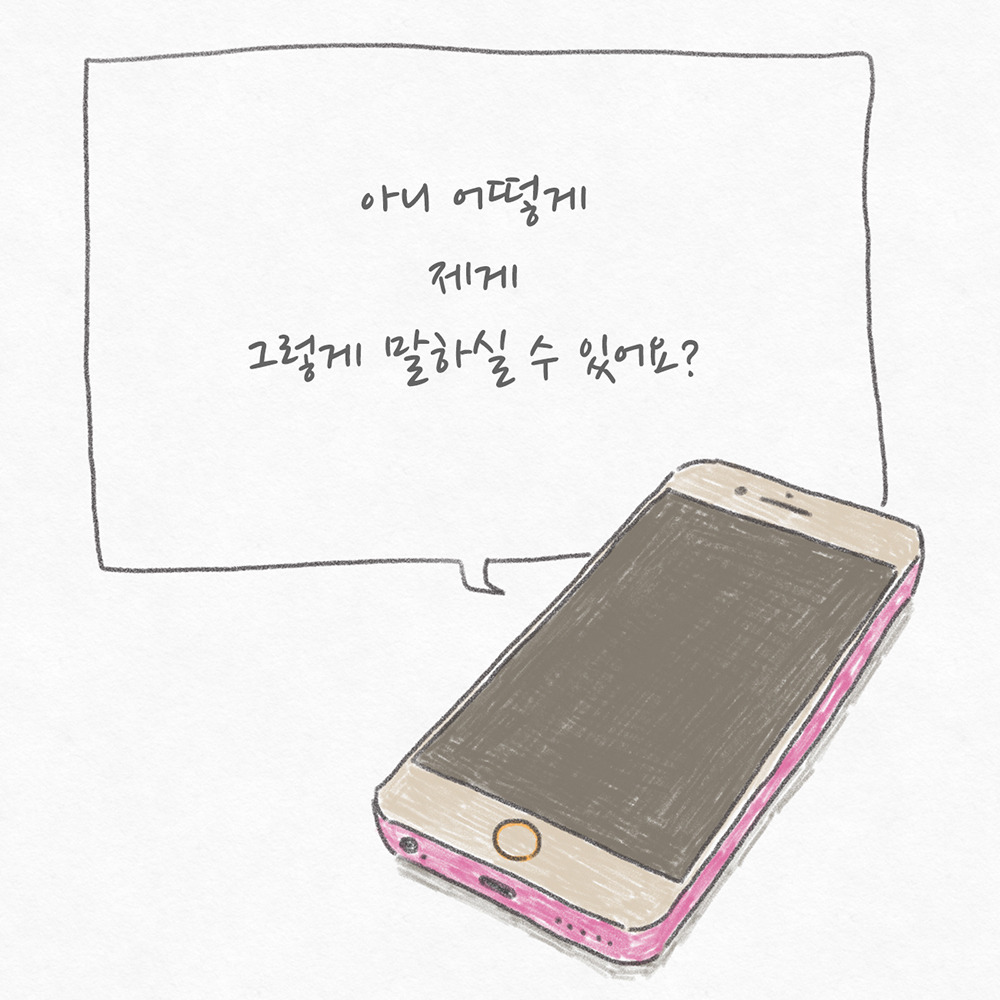 아니 어떻게
제게
그렇게 말하실 수 있어요?